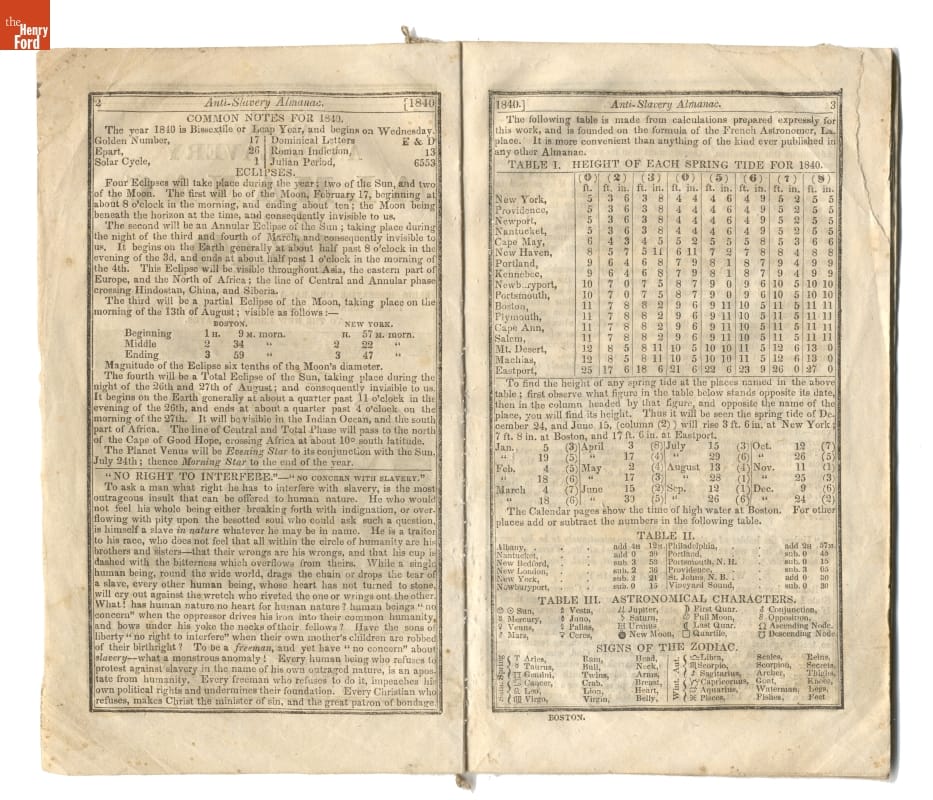 the
Henry
Ford
2 Anti-Slavery Almanac. [1840
COMMON NOTES FOR 1840.
The year 1840 is Bissextile or Leap Year, and begins on Wednesday.
Golden Number, 17 Dominical Letters E & D
Epact, 26 Roman Indiction, 13
Solar Cycle, 1 Julian Period, 6553
ECLIPSES.
Four Eclipses will take place during the year; two of the Sun, and two
of the Moon. The first will be of the Moon, February 17, beginning at
about 8 o'clock in the morning, and ending about ten; the Moon being
beneath the horizon at the time, and consequently invisible to us.
The second will be an Annular Eclipse of the Sun; taking place during
the night of the third and fourth of March, and consequently invisible to
us. It begins on the Earth generally at about half past 8 o'clock in the
evening of the 3d, and ends at about half past 1 o'clock in the morning of
the 4th. This Eclipse will be visible throughout Asia, the eastern part of
Europe, and the North of Africa; the line of Central and Annular phase
crossing Hindostan, China, and Siberia.
The third will be a partial Eclipse of the Moon, taking place on the
morning of the 13th of August; visible as follows:—
BOSTON. NEW YORK.
Beginning 1 H. 9 M. morn. H. 57 M. morn.
Middle 2 34 " 2 22 "
Ending 3 59 " 3 47 "
Magnitude of the Eclipse six tenths of the Moon's diameter.
The fourth will be a Total Eclipse of the Sun, taking place during the
night of the 26th and 27th of August; and consequently invisible to us.
It begins on the Earth generally at about a quarter past 11 o'clock in the
evening of the 26th, and ends at about a quarter past 4 o'clock on the
morning of the 27th. It will be visible in the Indian Ocean, and the south
part of Africa. The line of Central and Total Phase will pass to the north
of the Cape of Good Hope, crossing Africa at about 10° south latitude.
The Planet Venus will be Evening Star to its conjunction with the Sun,
July 24th; thence Morning Star to the end of the year.
"NO RIGHT TO INTERFERE."—"NO CONCERN WITH SLAVERY."
To ask a man what right he has to interfere with slavery, is the most
outrageous insult that can be offered to human nature. He who would
not feel his whole being either breaking forth with indignation, or over-
flowing with pity upon the besotted soul who could ask such a question,
is himself a slave in nature whatever he may be in name. He is a traitor
to his race, who does not feel that all within the circle of humanity are his
brothers and sisters—that their wrongs are his wrongs, and that his cup is
dashed with the bitterness which overflows from theirs. While a single
human being, round the wide world, drags the chain or drops the tear of
a slave, every other human being, whose heart has not turned to stone,
will cry out against the wretch who riveted the one or wrings out the other.
What! has human nature no heart for human nature? human beings "no
concern" when the oppressor drives his iron into their common humanity,
and bows under his yoke the necks of their fellows? Have the sons of
liberty "no right to interfere" when their own mother's children are robbed
of their birthright? To be a freeman, and yet have "no concern" about
slavery—what a monstrous anomaly! Every human being who refuses to
protest against slavery in the name of his own outraged nature, is an apos-
tate from humanity. Every freeman who refuses to do it, impeaches his
own political rights and undermines their foundation. Every Christian who
refuses, makes Christ the minister of sin, and the great patron of bondage
1840.] Anti-Slavery Almanac. 3
The following table is made from calculations prepared expressly for
this work, and is founded on the formula of the French Astronomer, La-
place. It is more convenient than anything of the kind ever published in
any other Almanac.
TABLE I. HEIGHT OF EACH SPRING TIDE FOR 1840.
(2) (3) (5) (6) (7) (8)
ft. ft. in. ft. in. ft. in. ft. in. ft. in. ft. in. ft. in.
New York, 5 3 6 3 8 4 4 4 6 4 9 5 2 5 5
Providence, 5 3 6 3 8 4 4 4 6 4 9 5 2 5 5
Newport, 5 3 6 3 8 4 4 4 6 4 9 5 2 5 5
Nantucket, 5 3 6 3 8 4 4 4 6 4 9 5 2 5 5
Cape May, 6 4 3 4 5 5 2 5 5 5 8 5 3 6 6
New Haven, 8 5 7 5 11 6 11 7 2 7 8 8 4 8 8
Portland, 9 6 4 6 8 7 9 8 1 8 7 9 4 9 9
Kennebec, 9 6 4 6 8 7 9 8 1 8 7 9 4 9 9
Newb.ryport, 10 7 0 7 5 8 7 9 0 9 6 10 5 10 10
Portsmouth, 10 7 0 7 5 8 7 9 0 9 6 10 5 10 10
Boston, 11 7 8 8 2 9 6 9 11 10 5 11 5 11 11
Plymouth, 11 7 8 8 2 9 6 9 11 10 5 11 5 11 11
Cape Ann, 11 7 8 8 2 9 6 9 11 10 5 11 5 11 11
Salem, 11 7 8 8 2 9 6 9 11 10 5 11 5 11 11
Mt. Desert, 12 8 5 8 11 10 5 10 10 11 5 12 6 13 0
Machias, 12 8 5 8 11 10 5 10 10 11 5 12 6 13 0
Eastport, 25 17 6 18 6 21 6 22 6 23 9 26 0 27 0
To find the height of any spring tide at the places named in the above
table; first observe what figure in the table below stands opposite its date,
then in the column headed by that figure, and opposite the name of the
place, you will find its height. Thus it will be seen the spring tide of De-
cember 24, and June 15, (column (2)) will rise 3 ft. 6 in. at New York;
7 ft. 8 in. at Boston, and 17 ft. 6 in. at Eastport.
Jan. 5 (3) April 3 (8) July 15 (3) Oct. 12 (7)
" 19 (5) " 17 (4) " 29 (6) " 26 (5)
Feb. 4 (5) May 2 (4) August 13 (4) Nov. 11 (1)
" 18 (6) " 17 (3) " 28 (1) " 25 (3)
March 4 (7) June 15 (2) Sep. 12 (1) Dec. 9 (6)
" 18 (6) " 30 (5) " 26 (6) " 24 (2)
The Calendar pages show the time of high water at Boston. For other
places add or subtract the numbers in the following table.
TABLE II.
Albany, add 4H 12M. Philadelphia, add 2H 57M.
Nantucket, add 0 30 Portland, sub. 0 45
New Bedford, sub. 3 53 Portsmouth, N. H. sub. 0 15
New London, sub. 2 36 Providence, sub. 3 05
New York, sub. 2 21 St. Johns, N. B. add 0 30
Newburyport, sub. 0 15 Vineyard Sound, sub. 0 30
TABLE III. ASTRONOMICAL CHARACTERS.
☉ Sun, Vesta, Jupiter, First Quar. Conjunction,
Mercury, Juno, Saturn, Full Moon, Opposition,
Venus, Pallas, Uranus Last Quar. Ascending Node.
Mars, Ceres, New Moon, Quartile, Descending Node
SIGNS OF THE ZODIAC.
Aries, Ram, Head, Libra, Scales, Reins,
Taurus, Bull, Neck, Scorpio, Scorpion, Secrets,
Gemini, Twins, Arms, Sagitarius, Archer, Thighs,
Cancer, Crab, Breast, Capricornus, Goat, Knees,
Leo, Lion, Heart, Aquarius, Waterman, Legs,
Virgo, Virgin, Belly, Pisces, Fishes, Feet
BOSTON.